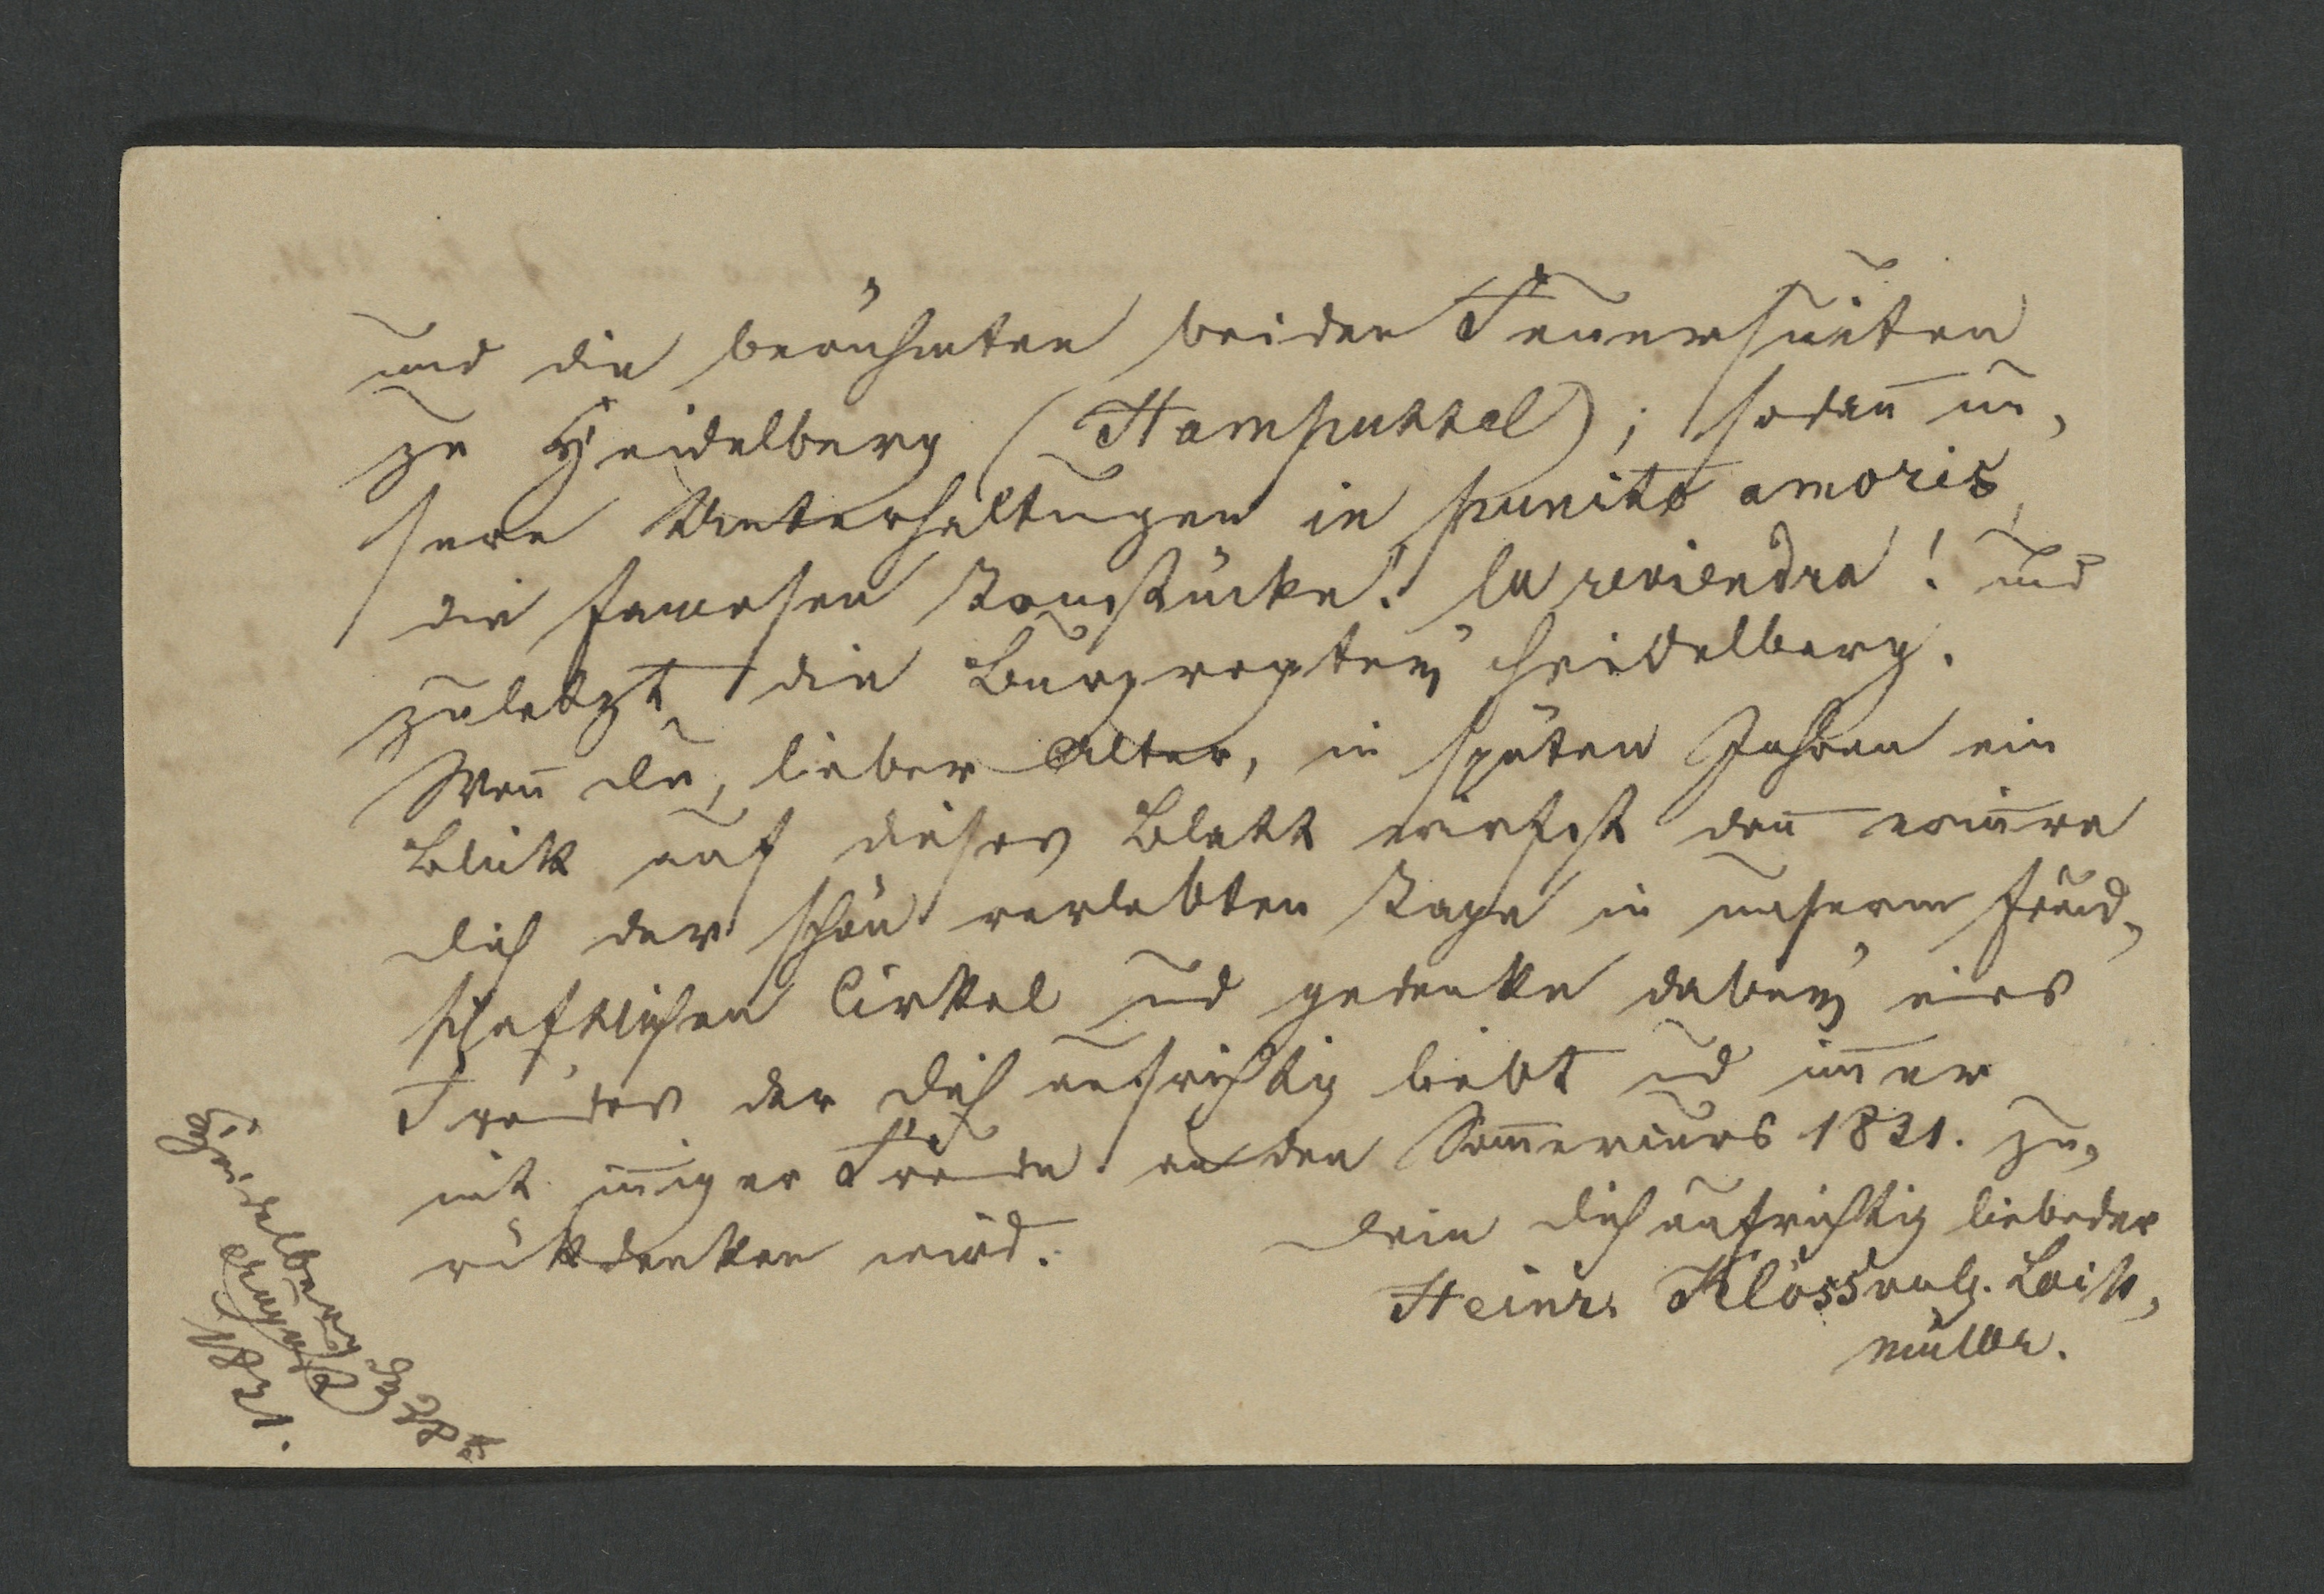 und die berühmten beiden Feuersuiten
zu Heidelberg (Hamputtel); sodan̄ un-
sere Unterhaltungen in puncto amoris,
die famosen Tonstücke: la reviendra! und
zuletzt die Burgruptey Heidelberg.
Wen̄ Du, lieber Alter, in späten Jahren ein
Blick auf dieses Blatt wirfst dan̄ erin̄re
Dich der schön verlebten Tage in unserm freud-
schaftlichen Cirkel und gedenke dabey eines
Freundes der Dich aufrichtig liebt und im̄er
mit in̄iger Freude an den Som̄ercurs 1831. zu-
rükdenken wird.
Dein Dich aufrichtig liebender
Heinr. Klöss
müller.
Heidelberg d 28t
August
1831.